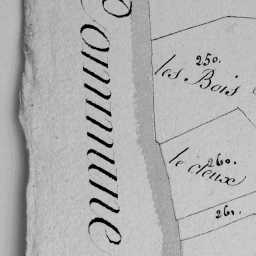 Commune
250.
les Bois
260.
le cleux
261.